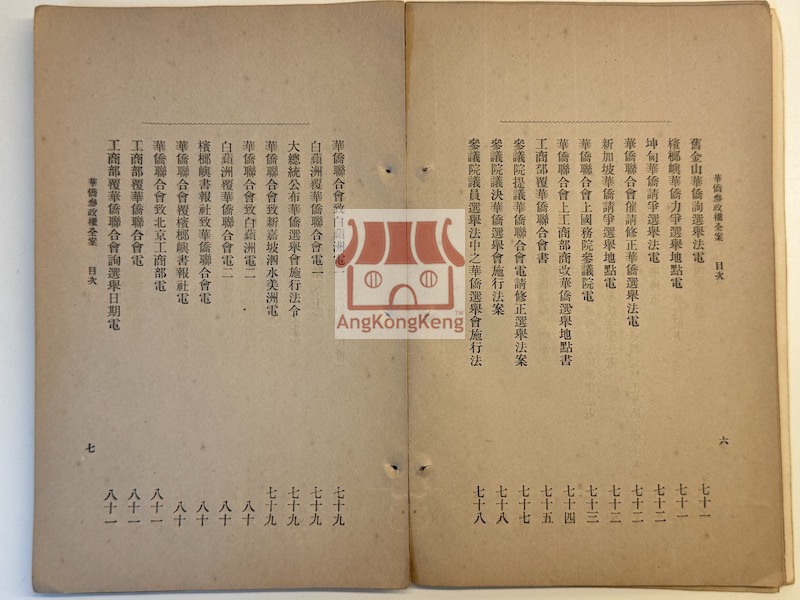 華僑參政權全案 目次 六
舊金山華僑詢選舉法電 七十一
檳榔嶼華僑力爭選舉地點電 七十一
坤甸華僑請爭選舉法電 七十二
華僑聯合會催請修正華僑選舉法電 七十二
新加坡華僑請爭選舉地點電 七十二
華僑聯合會上國務院參議院電 七十三
華僑聯合會上工商部商改華僑選舉地點書 七十四
工商部覆華僑聯合會書 七十五
參議院提議華僑聯合會電請修正選舉法案 七十七
參議院議決華僑選舉會施行法案 七十八
參議院議員選舉法中之華僑選舉會施行法 七十八
華僑聯合會致白蘋洲電一 七十九
白蘋洲覆華僑聯合會電一 七十九
大總統公布華僑選舉會施行法令 七十九
華僑聯合會致新嘉坡泗水美洲電 七十九
華僑聯合會致白蘋洲電二 八十
白蘋洲覆華僑聯合會電二 八十
檳榔嶼書報社致華僑聯合會電 八十
華僑聯合會覆檳榔嶼書報社電 八十
華僑聯合會致北京工商部電 八十一
工商部覆華僑聯合會電 八十一
工商部覆華僑聯合會詢選舉日期電 八十一
華僑參政權全案 目次 七
AngKongKeng™